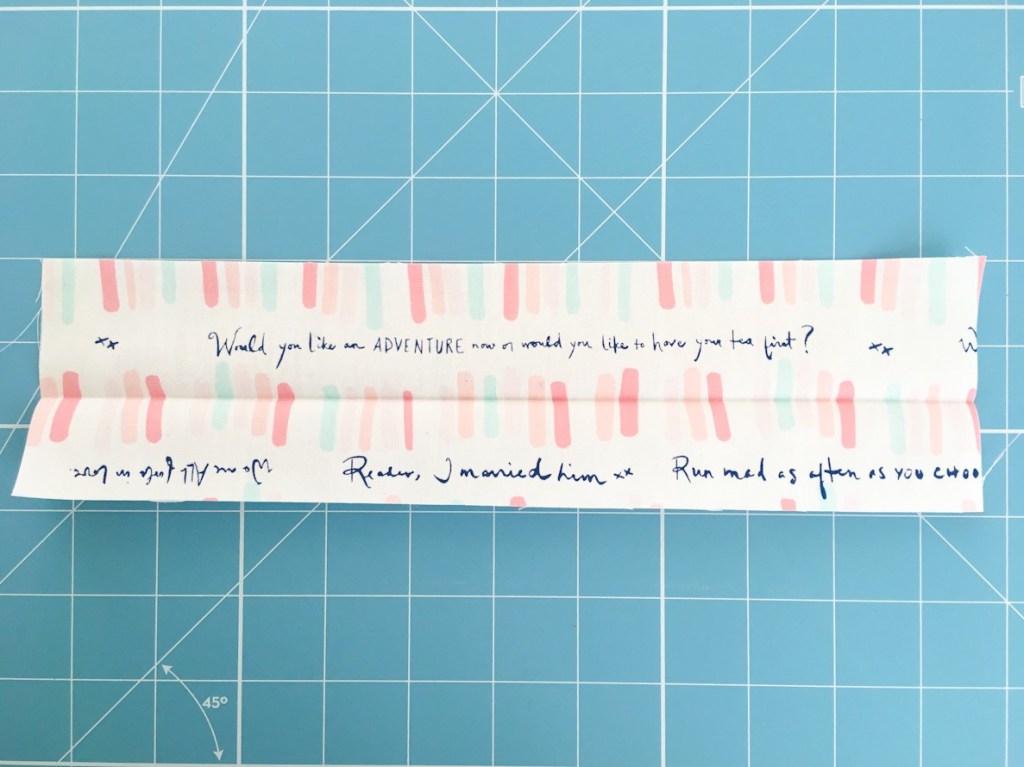 xx Would you like an ADVENTURE now or would you like to have your tea first? xx W
We are All fools in love. Reader, I married him xx Run mad as often as you choo
45°